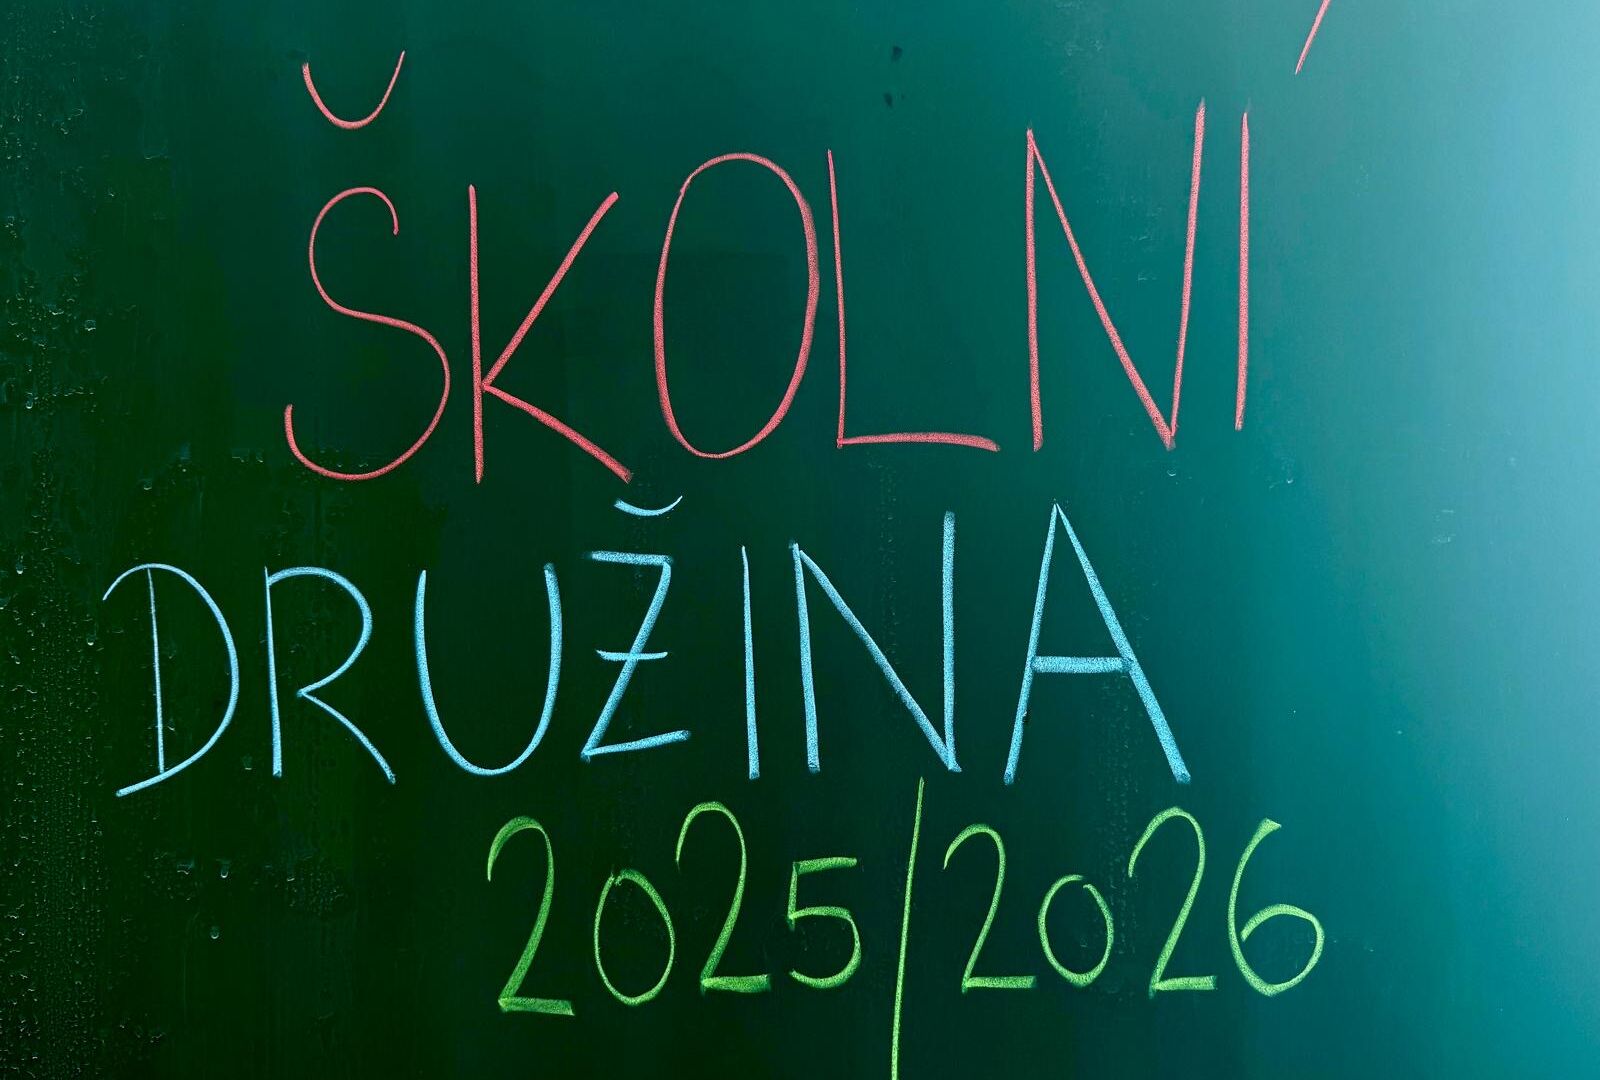 ŠKOLNÍ
DRUŽINA
2025/2026